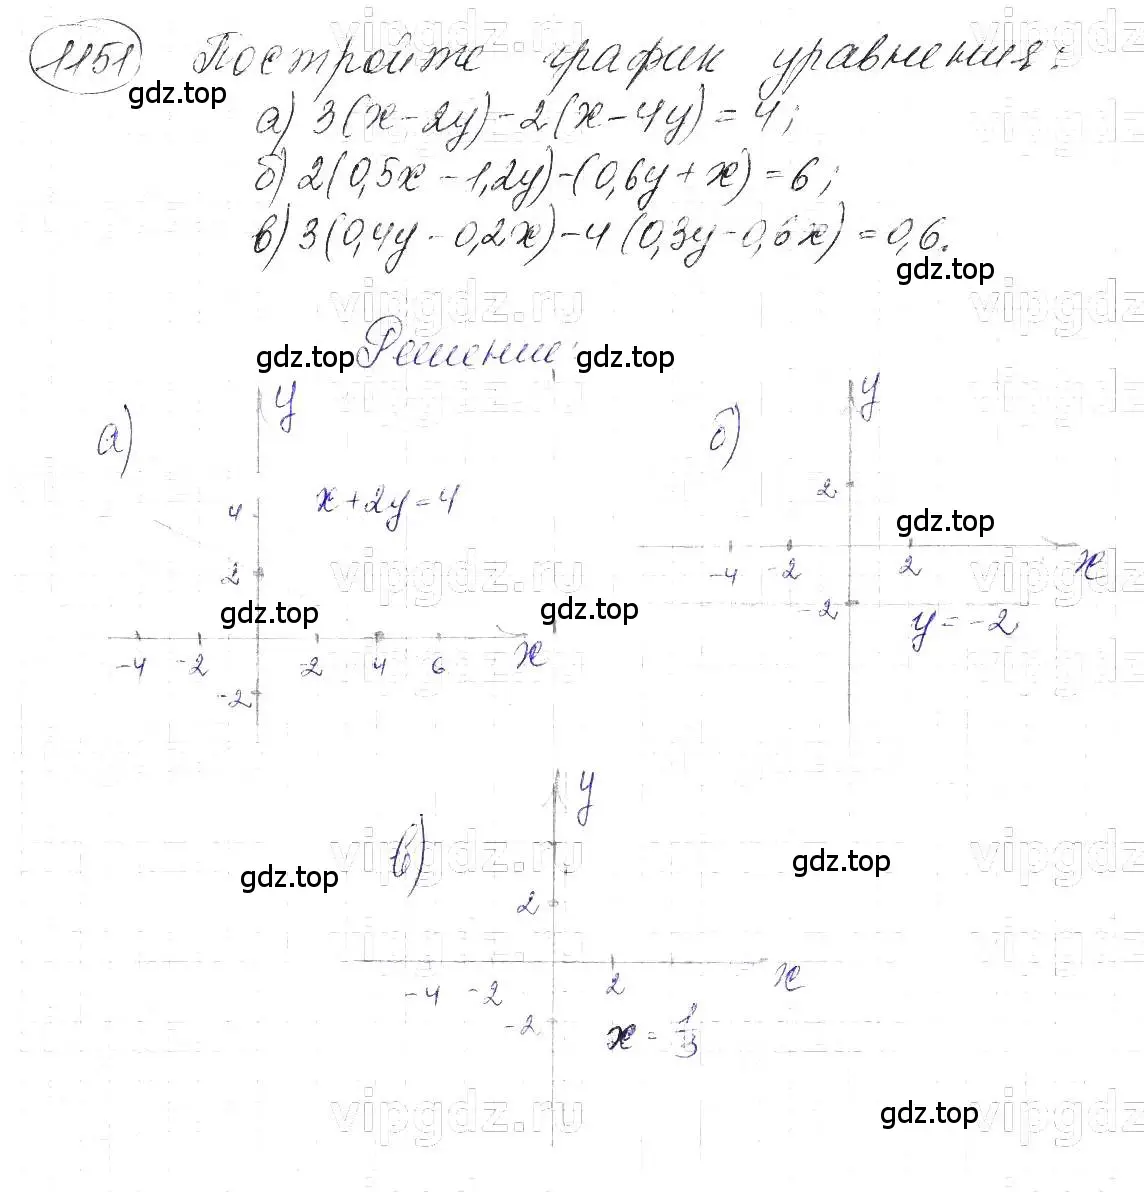 1151 Постройте график уравнения:
gdz.top
а) 3(x-2y)-2(x-4y)=4;
б) 2(0,5x-1,2y)-(0,6y+x)=6;
в) 3(0,4y-0,2x)-4(0,3y-0,6x)=0,6.
gdz.top
vipgdz.ru
gdz.top Решение: gdz.top
а) y
x+2y=4
4
2
gdz.top gdz.top
-4 -2 2 4 6 x
-2
б) y
2
gdz.top
-4 -2 2 x
-2
y=-2
vipgdz.ru
в) y
gdz.top gdz.top
2
-4 -2 2 x
-2
x = 1/3
vipgdz.ru
gdz.top